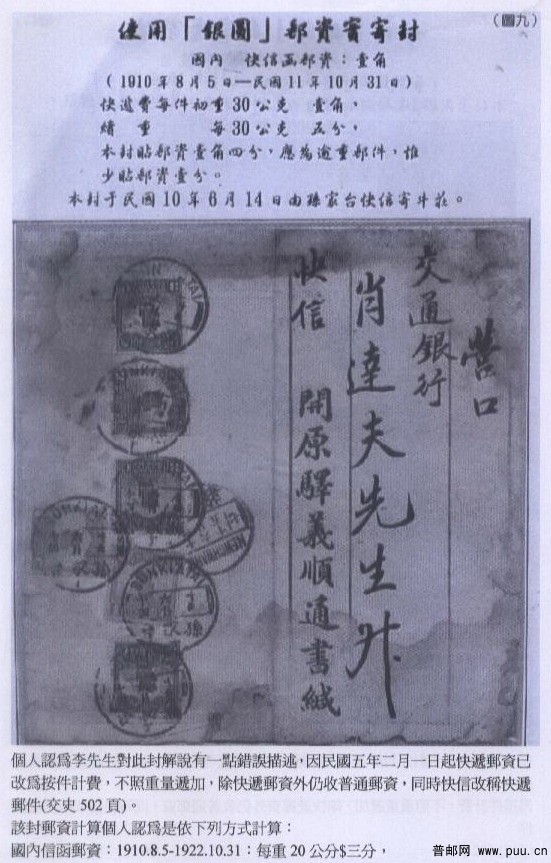 (圖九)
使用「銀圓」郵資實寄封
國內　快信函郵資：壹角
(1910年8月5日—民國11年10月31日)
快遞費每件初重30公克　壹角，
續　重　每30公克　五分，
本封貼郵資壹角四分，應為逾重郵件，惟
少貼郵資壹分。
本封于民國10年6月14日由孫家台快信寄牛莊。
營口
交通銀行
肖達夫先生升
開原驛義順通書緘
快信
SUNKIATAI
個人認爲李先生對此封解說有一點錯誤描述，因民國五年二月一日起快遞郵資已
改爲按件計費，不照重量遞加，除快遞郵資外仍收普通郵資，同時快信改稱快遞
郵件(交史502頁)。
該封郵資計算個人認爲是依下列方式計算：
國內信函郵資：1910.8.5-1922.10.31：每重20公分$三分，
普邮网 www.puu.cn